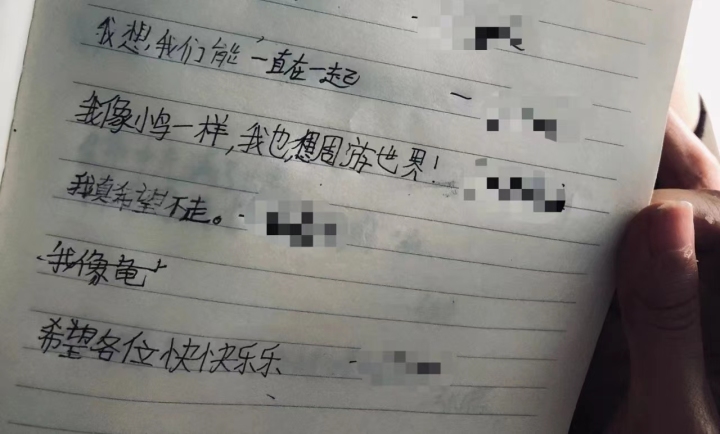 我想,我们能一直在一起
我像小鸟一样,我也想周游世界!
我真希望不走。
我像龟
希望各位快快乐乐